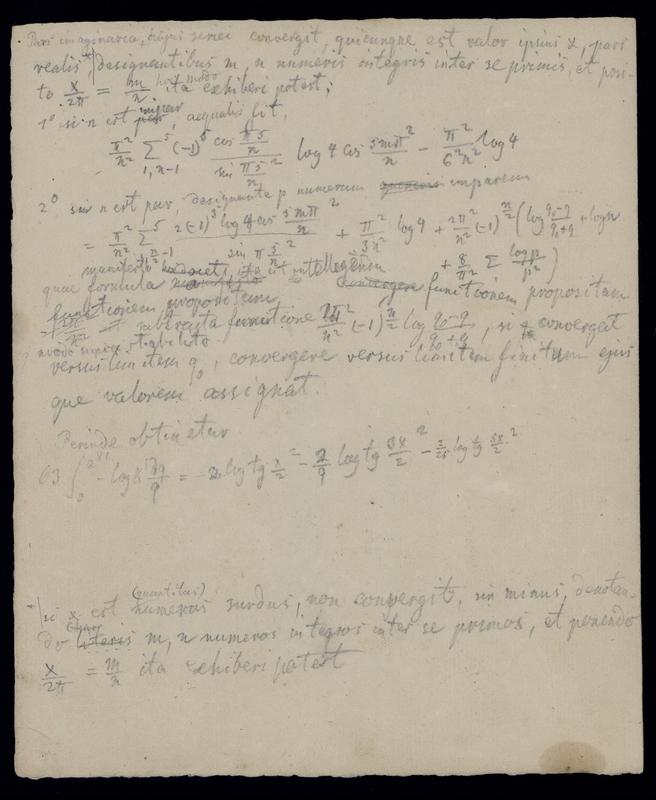 Pars imaginaria, seriei convergit, quicunque est valor ipsius x, pars
realis designantibus m, n numeris integris inter se primis, et posi-
to x/2π = m/n hoc modo ita exhiberi potest;
1° si n est impar, aequalis fit,
π²/n² Σ^s_{1, n-1} (-1)^s cos πs/n / sin πs/n ² log 4 cos smπ/n ² − π²/6²n² log 4
2° si n est par, designante p numerum imparem
= π²/n² Σ^s 2(-1)^s log 4 cos smπ/n ² / sin π s/n ² + π²/3n² log 4 + 2π²/n² (-1)^{n/2} (log q₀-q/q₀+q + log n
+ 8/π² Σ log p/p²)
manifesto
quae formula ita est intellegenda convergere functionem propositam
functionem propositam
subtracta functione 2π²/n² (-1)^{n/2} log q₀-q/q₀+q, si q convergat
modo supra stabilito
versus limitem q₀, convergere versus limitem finitum ejus
que valorem assignat.
Perinde obtinetur
63 ∫₀ − log k dq/q = −2 log tg x/2 ² − 2/9 log tg 3x/2 ² − 2/25 log tg 5x/2 ²
(quantitas)
si x est numerus surdus, non convergit, sin minus, denotan-
do literis m, n numeros integros inter se primos, et ponendo
x/2π = m/n ita exhiberi potest